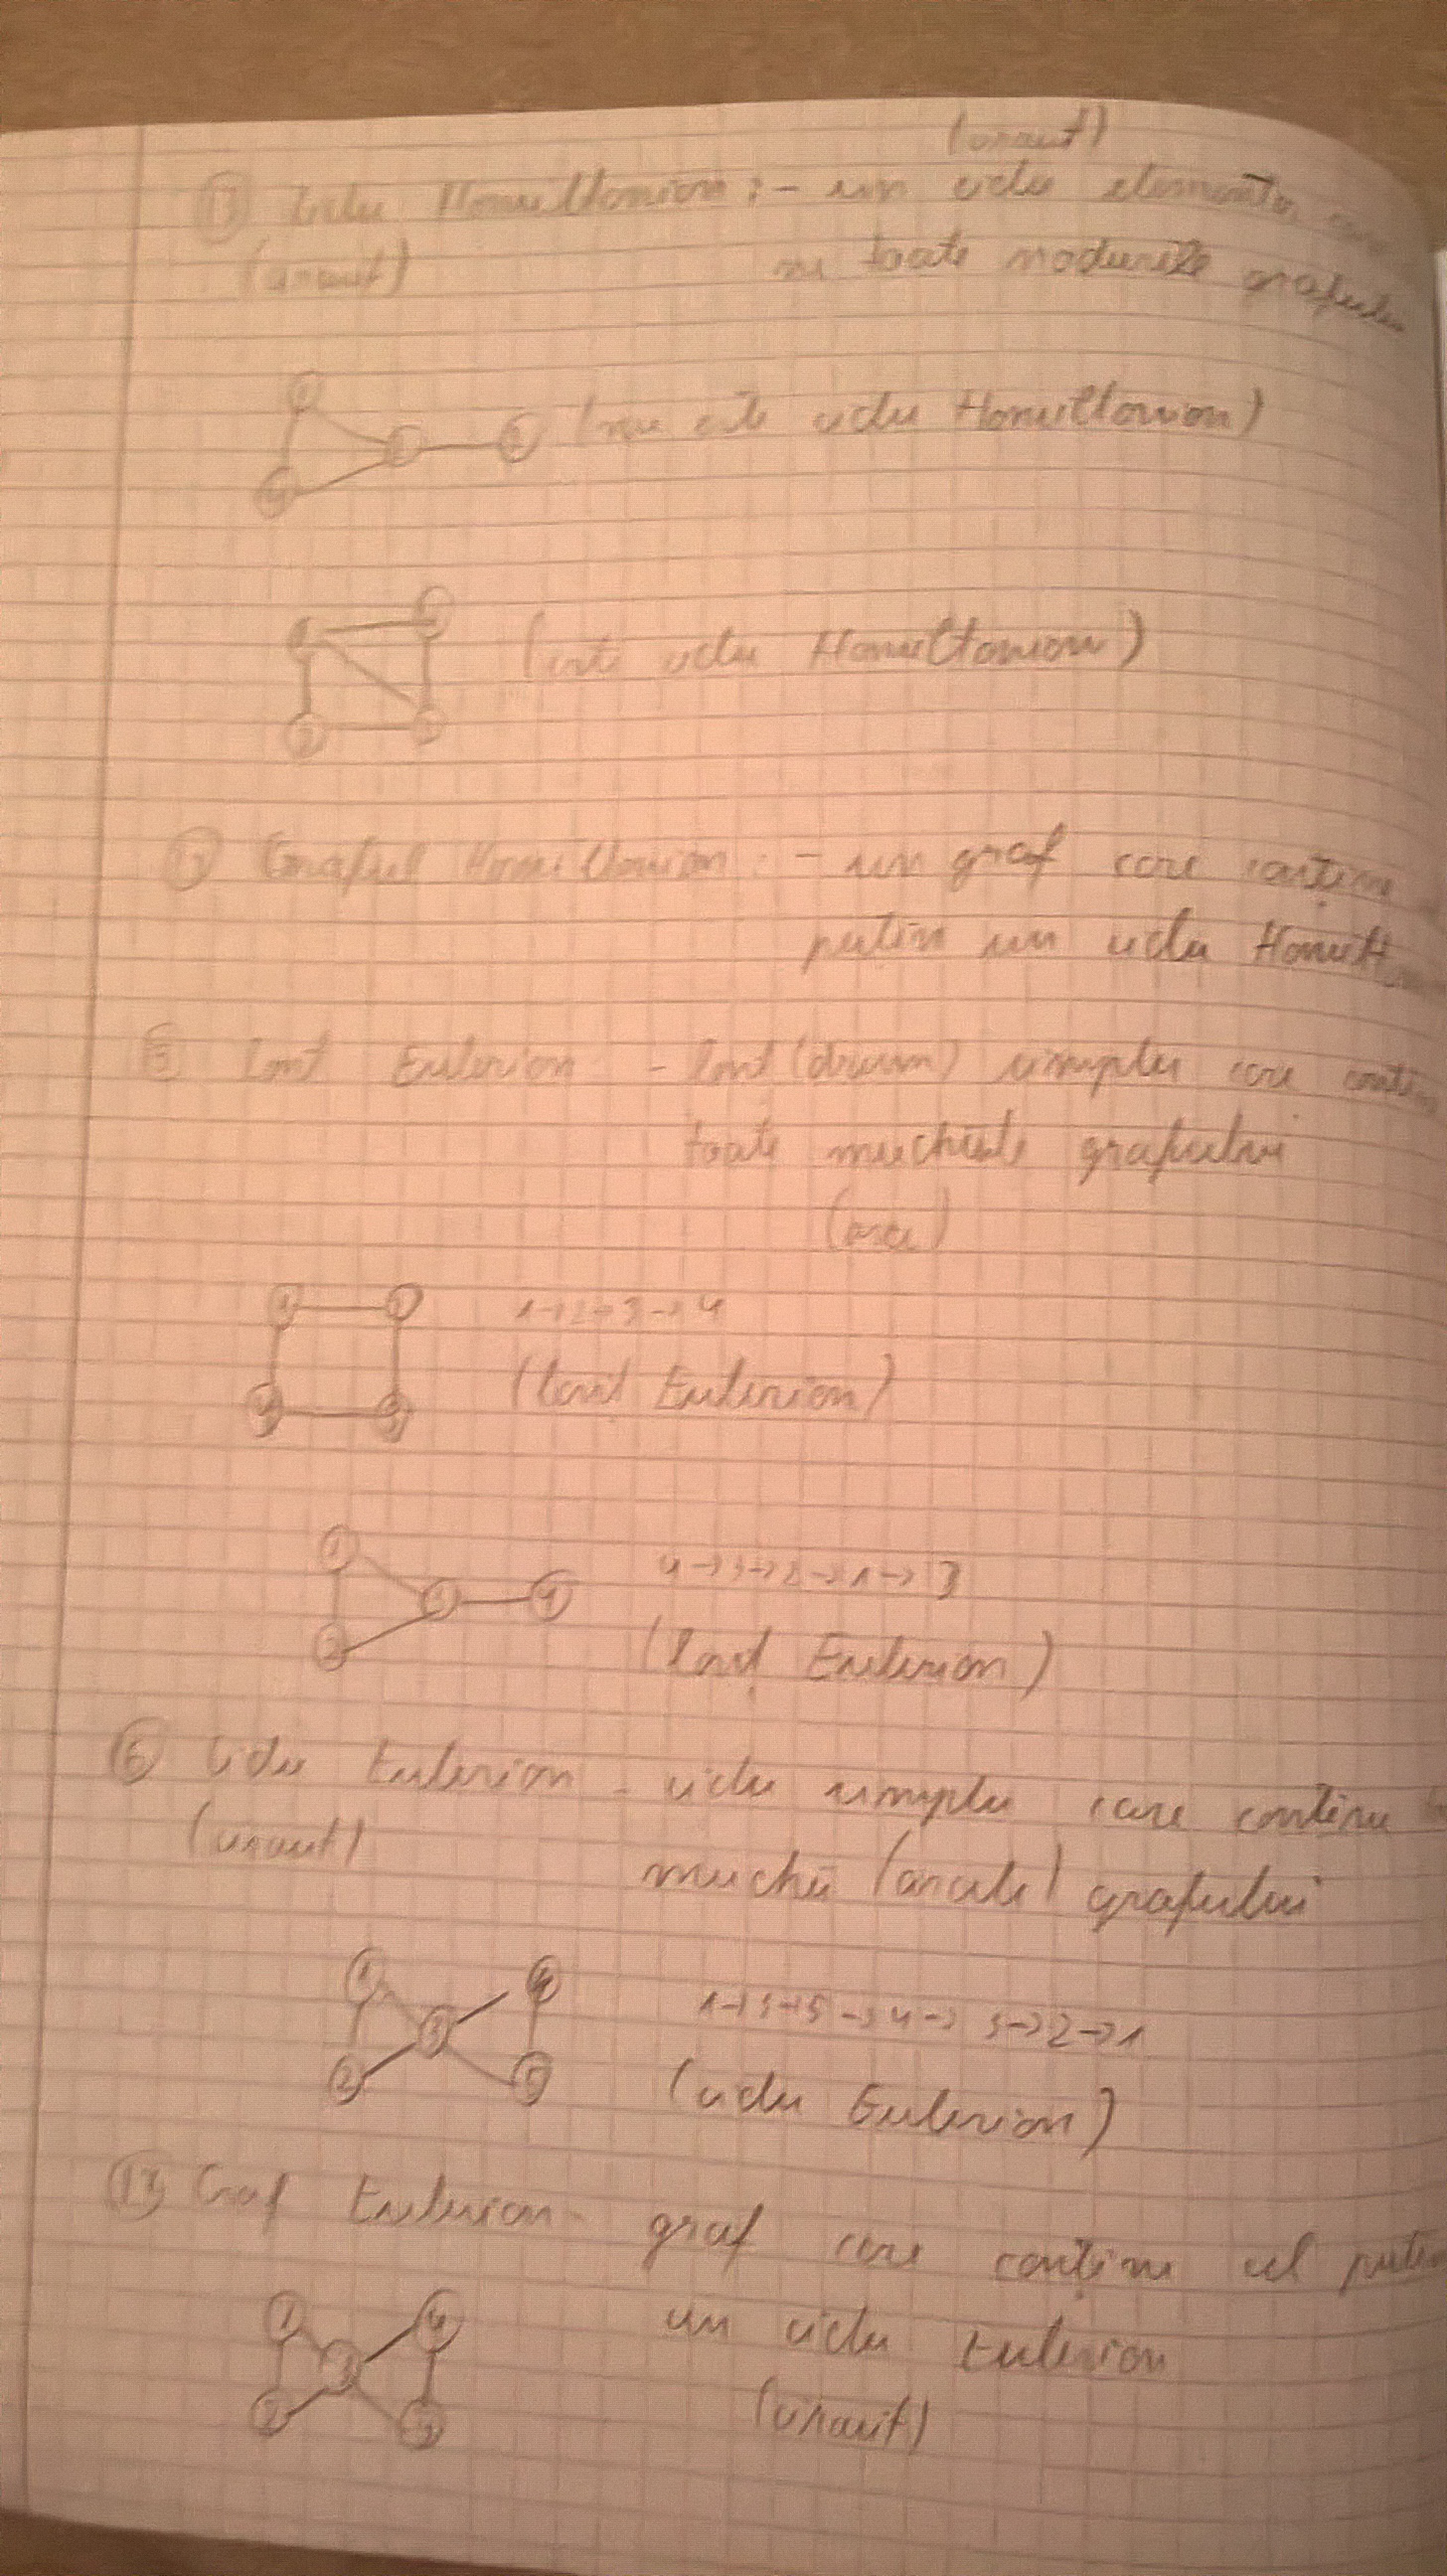 (circuit)
13 Ciclu Hamiltonian : - un ciclu elementar care
(circuit) toate nodurile grafului
(nu este ciclu Hamiltonian)
(este ciclu Hamiltonian)
Graful Hamiltonian : - un graf care conține
puțin un ciclu Hamilt
Lanț Eulerian - lanț (drum) simplu care conțin
toate muchiile grafului
(arce)
1 → 2 → 3 → 4
(lanț Eulerian)
1
2 3 4
4 → 3 → 2 → 1 → 3
(lanț Eulerian)
6 Ciclu Eulerian - ciclu simplu care contine
(circuit) muchii (arcele) grafului
1 4
3
2 5
1 → 3 → 5 → 4 → 3 → 2 → 1
(ciclu Eulerian)
17 Graf Eulerian - graf care conține cel puțin
un ciclu Eulerian
(circuit)
1 4
3
2 5